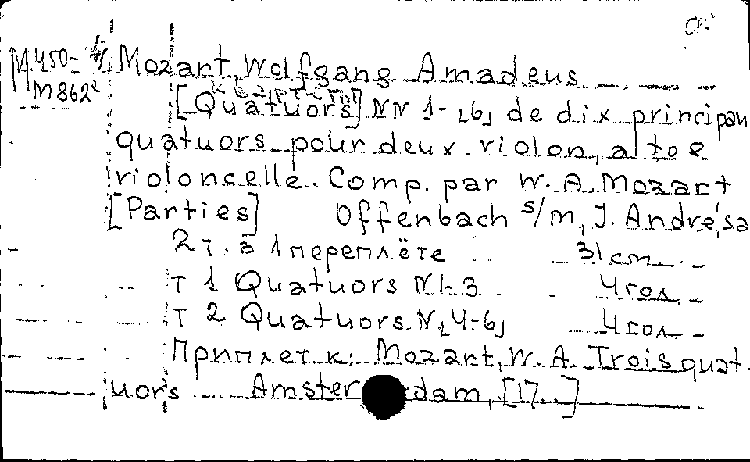 М450- Mozart, Wolfgang Amadeus
m862²
[Quatuors] NN 1-[6] de dix principau
quatuors pour deux violon, alto e
violoncelle. Comp. par W. A. Mozart
[Parties] Offenbach s/m, J. André, sa
2 т. в 1 переплёте 31 cm
т 1 Quatuors N1-3 4 гол.
т 2 Quatuors N[4-6] 4 гол.
Приплет к: Mozart, W. A. Trois quat
uors Amsterdam, [17..]